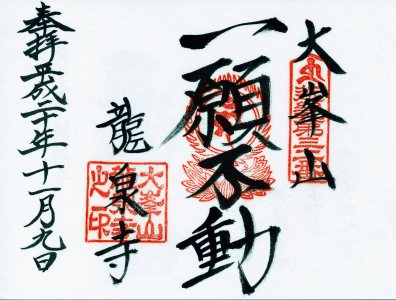 大峯山
一願不動
龍泉寺
奉拝 平成二十年十一月九日
大峯山
龍泉寺
之印